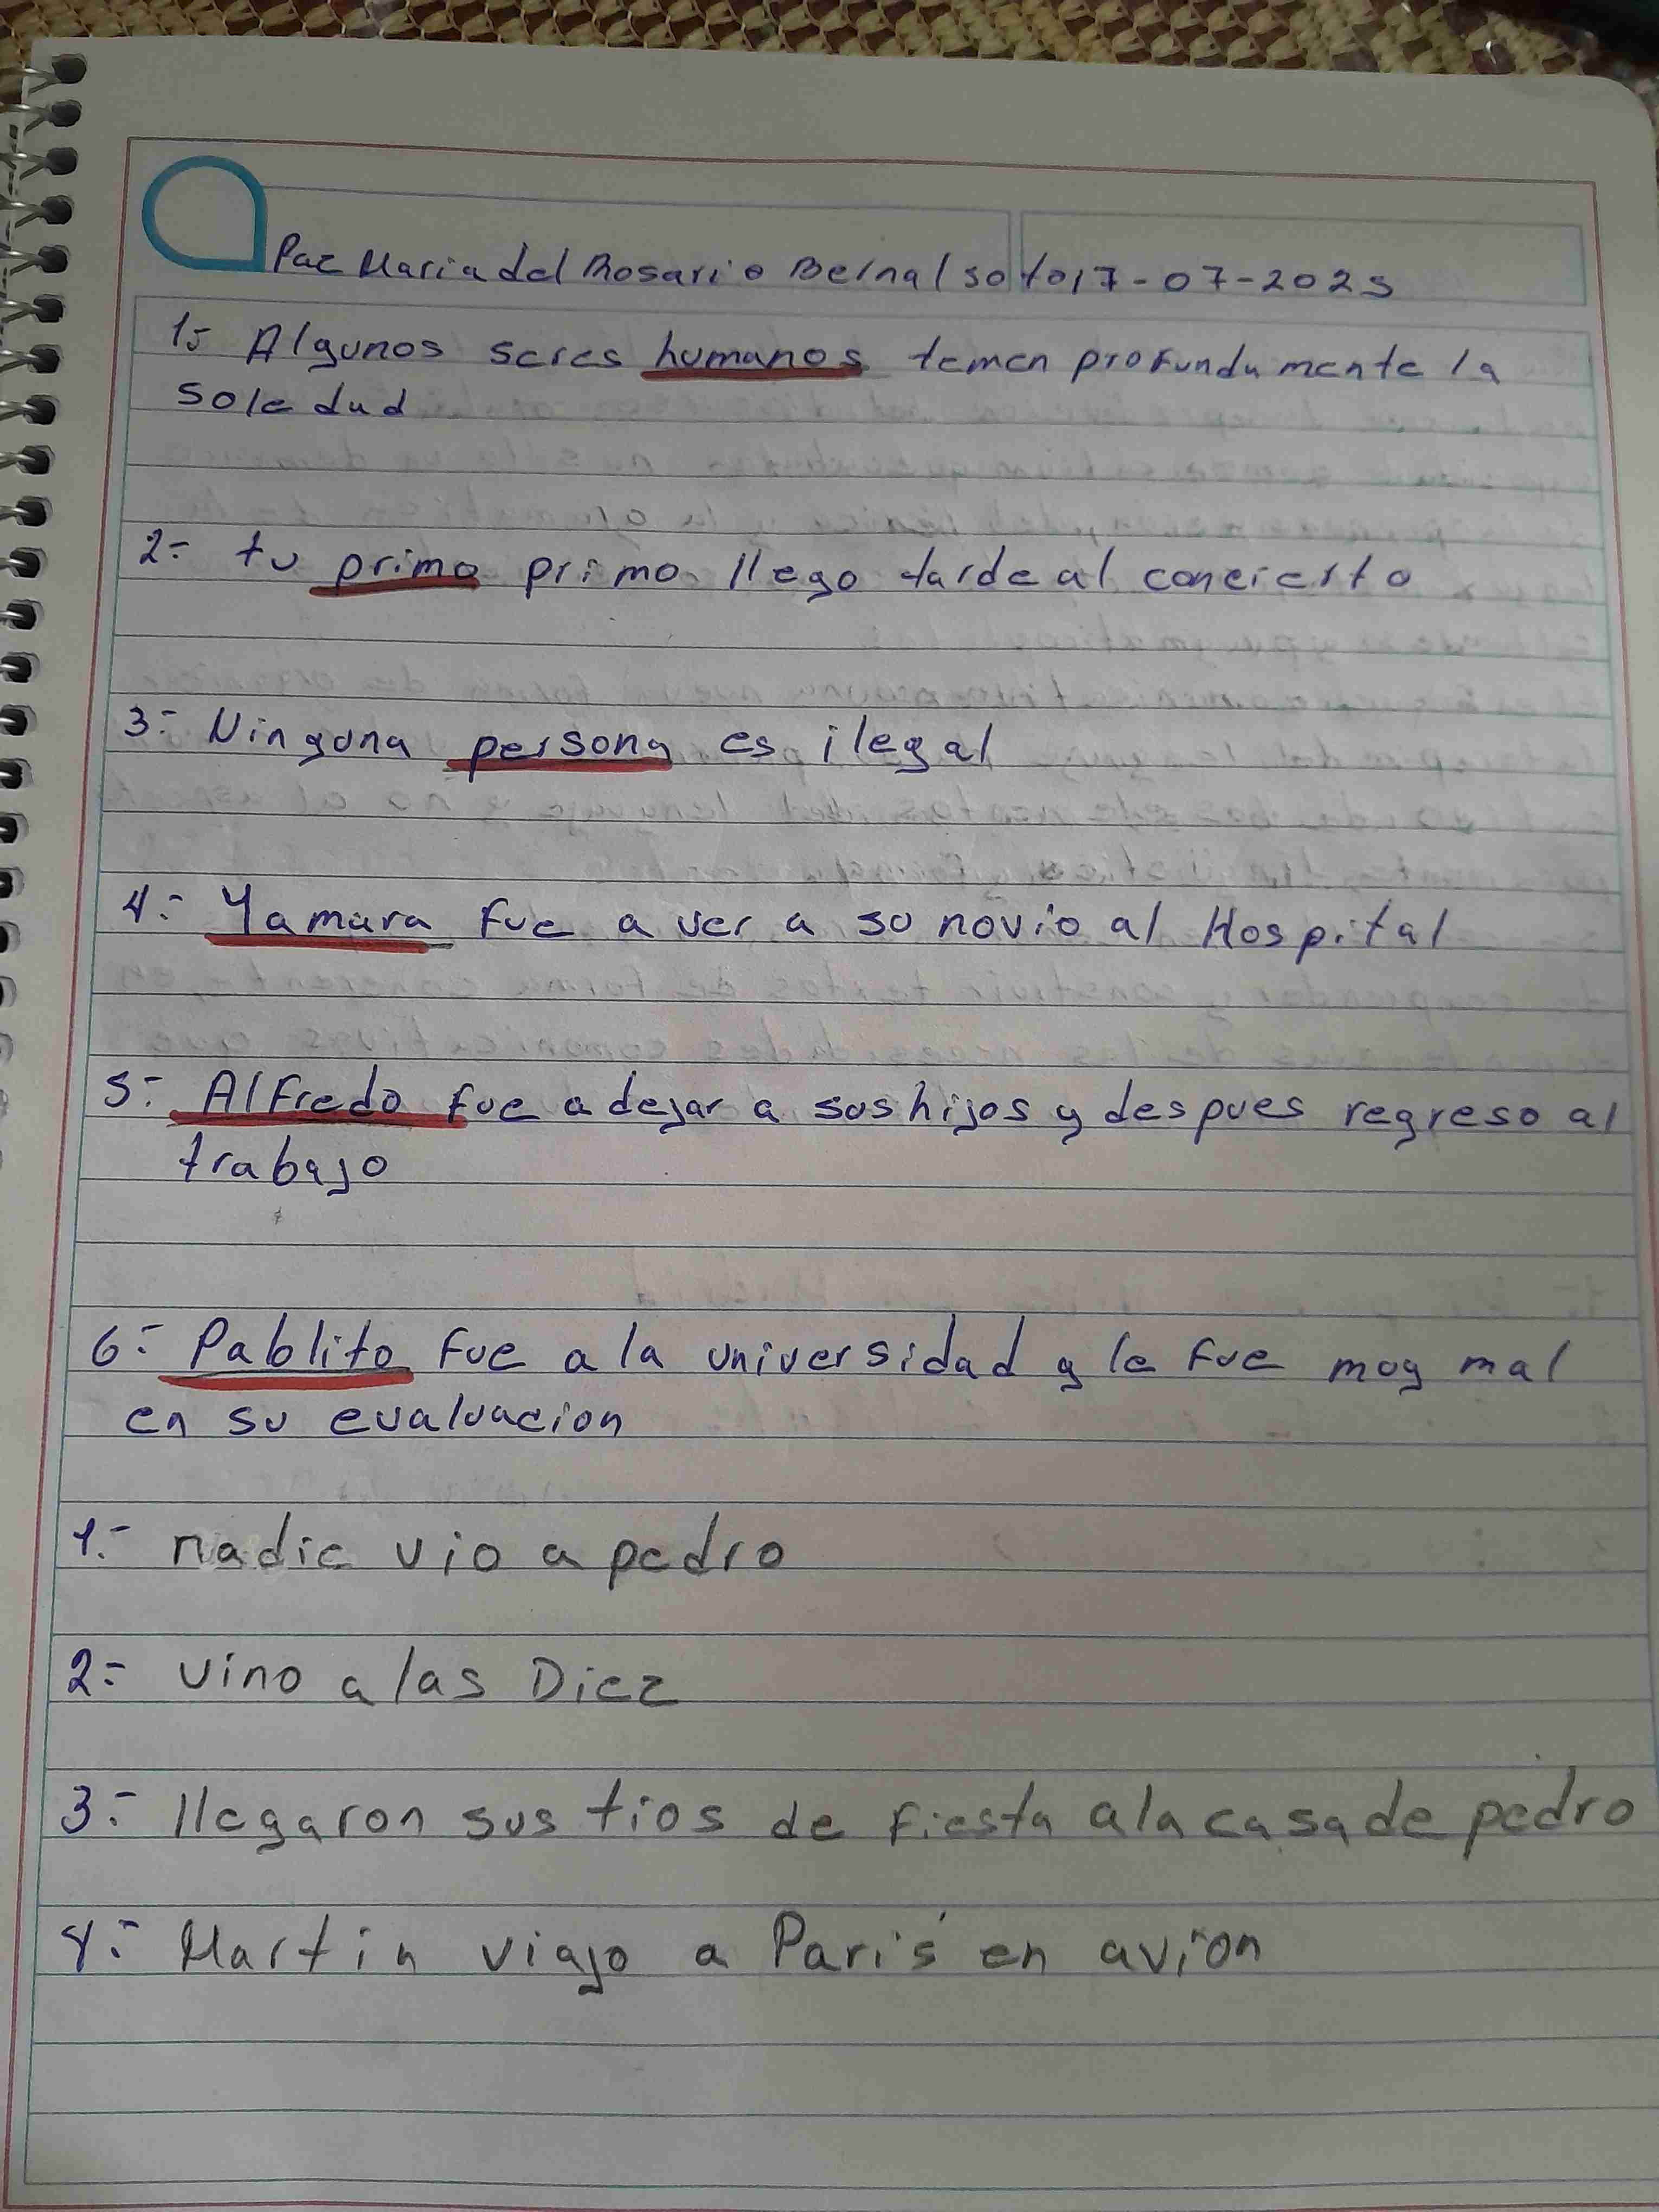 Paz Maria del Rosario Bernal soto 17-07-2025
1.- Algunos seres humanos temen profundamente la
soledad
2.- tu primo primo llego tarde al concierto
3.- Ninguna persona es ilegal
4.- Yamara fue a ver a su novio al Hospital
5.- Alfredo fue a dejar a sus hijos y despues regreso al
trabajo
6.- Pablito fue a la universidad y le fue muy mal
en su evaluacion
1.- nadie vio a pedro
2.- vino a las Diez
3.- llegaron sus tios de fiesta a la casa de pedro
4.- Martin viajo a Paris en avion